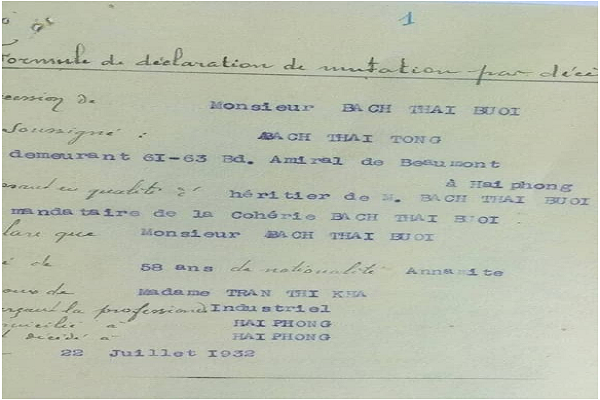 1
Formule de déclaration de mutation par décè
cession de Monsieur BACH THAI BUOI
soussigné : BACH THAI TONG
demeurant 6I-63 Bd. Amiral de Beaumont
à Haiphong
en qualité d' héritier de M. BACH THAI BUOI
mandataire de la Cohérie BACH THAI BUOI
lare que Monsieur BACH THAI BUOI
é de 58 ans de nationalité Annamite
oux de Madame TRAN THI KHA
erçant la profession d Industriel
micilié à HAI PHONG
t décédé à HAI PHONG
22 Juillet I932